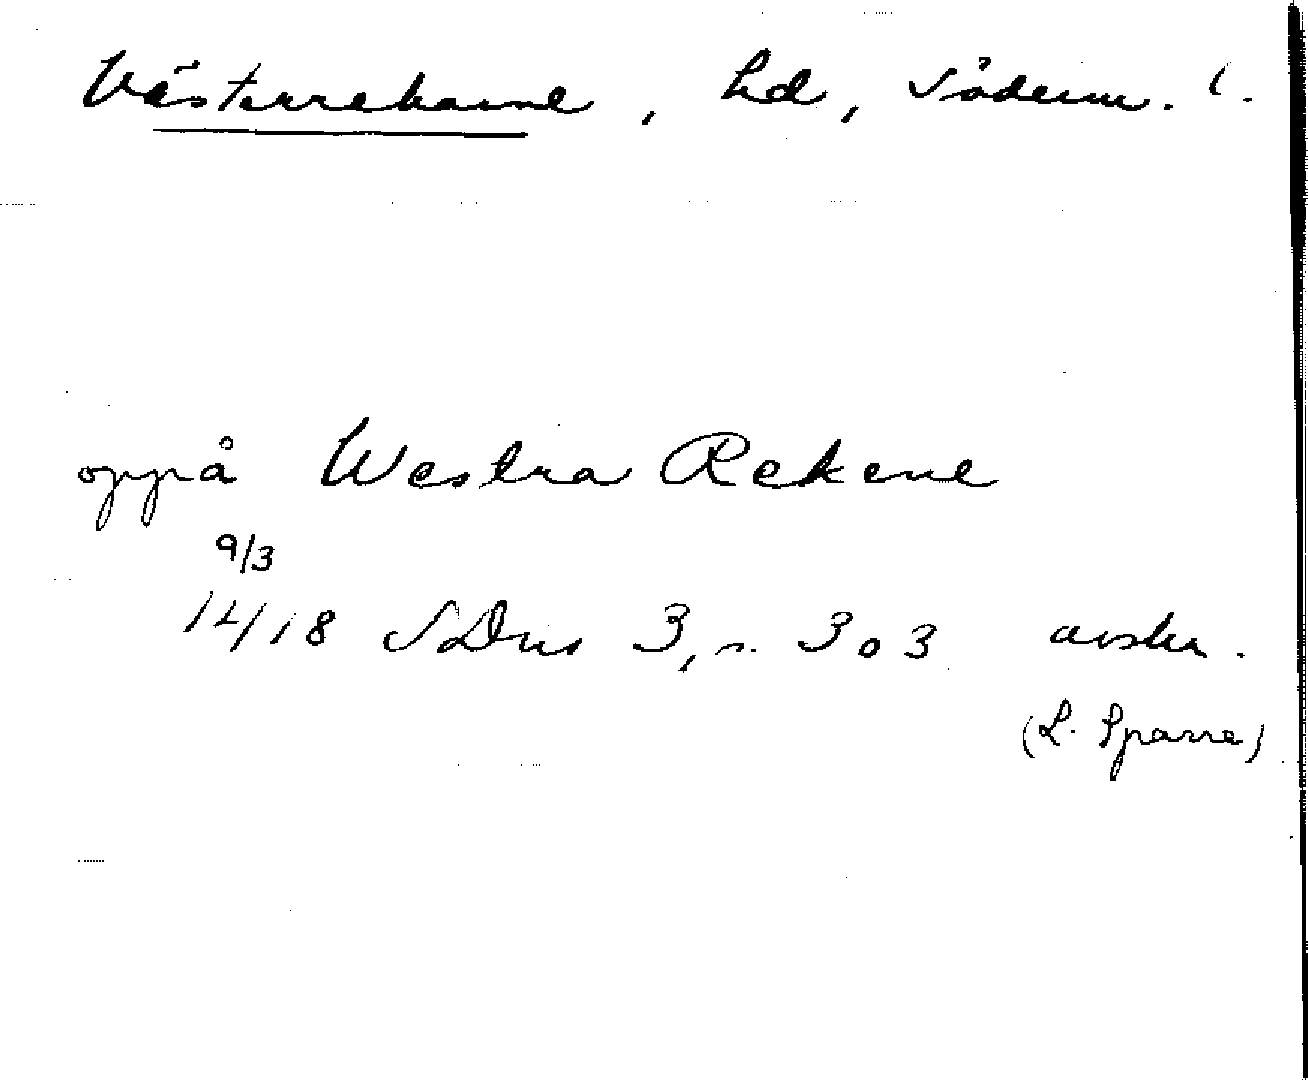 Västerrekarne, hd, Söderm. l.
oppå Westra Rekene
9/3
1418 SDns 3, s. 303 avskr.
(L. Sparre)